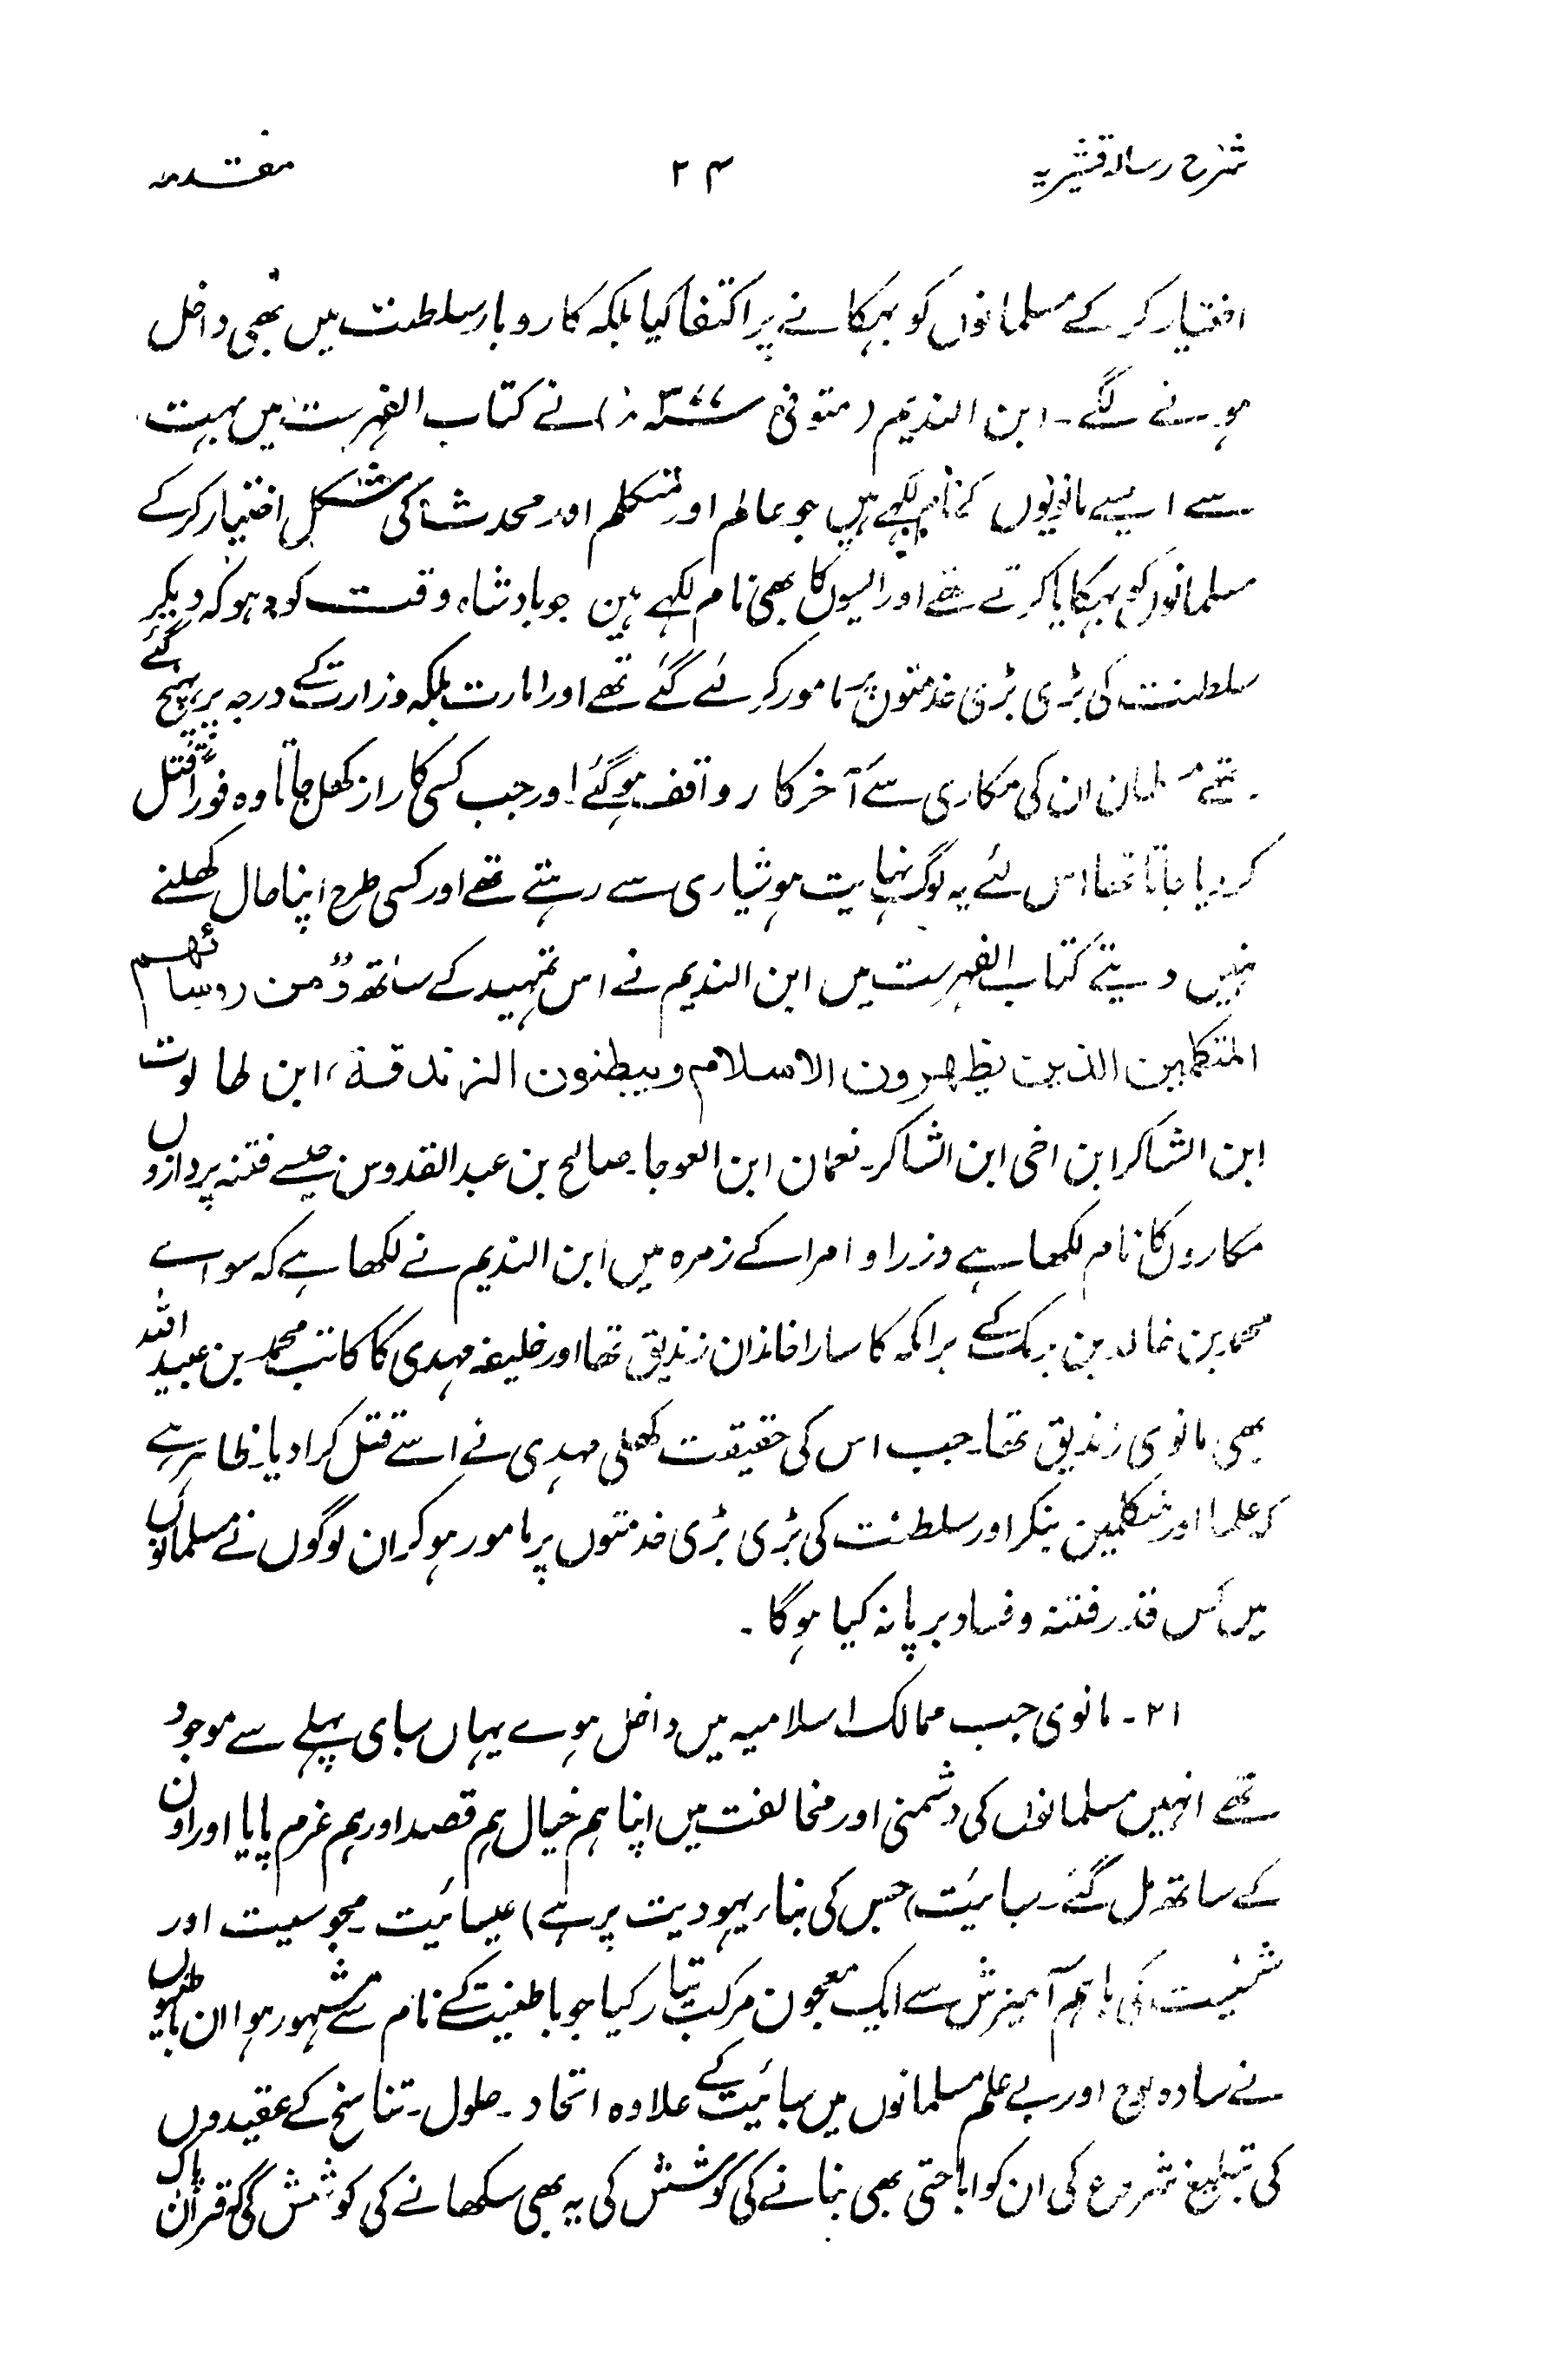 شرح رسالہ قشیریہ ۲۴ مقدمہ
اختیار کر کے مسلمانوں کو بہکانے پر اکتفا کیا بلکہ کاروبار سلطنت میں بھی داخل
ہونے لگے۔ ابن الندیم (متوفی ۳۷۷ھ) نے کتاب الفہرست میں بہت
سے ایسے مانویوں کے نام لکھے ہیں جو عالم اور متکلم اور محدث کی شکل اختیار کر کے
مسلمانوں کو بہکایا کرتے تھے اور ایسوں کا بھی نام لکھے ہین جو بادشاہ وقت کو دہوکہ دیکر
سلطنت کی بڑی بڑی خدمتوں پر مامور کرئے گئے تھے اور امارت بلکہ وزارت کے درجہ پر پہنچ گئے
تھے مسلمان ان کی مکاری سے آخرکار واقف ہوگئے اور جب کسی کا راز کھل جاتا وہ فوراً قتل
کر دیا جاتا تھا اس لئے یہ لوگ نہایت ہوشیاری سے رہتے تھے اور کسی طرح اپنا حال کھلنے
نہیں دیتے کتاب الفہرست میں ابن الندیم نے اس تمہید کے ساتھ "ومن روسائهم
المتکلمین الذین یظهرون الاسلام ویبطنون الزندقة، ابن طالوت
ابن الشاکر ابن اخی ابن الشاکر۔ نعمان ابن العوجا۔ صالح بن عبد القدوس جیسے فتنہ پردازوں
مکاروں کا نام لکھا ہے وزرا و امرا کے زمرہ میں ابن الندیم نے لکھا ہے کہ سواے
محمد بن خالد بن برمک کے برامکہ کا سارا خاندان زندیق تھا اور خلیفہ مہدی کا کاتب محمد بن عبید اللہ
بھی مانوی زندیق تھا۔ جب اس کی حقیقت کھلی مہدی نے اسے قتل کرا دیا۔ ظاہر ہے
کہ علما اور متکلمین بنکر اور سلطنت کی بڑی بڑی خدمتوں پر مامور ہوکر ان لوگوں نے مسلمانوں
میں کس قدر فتنہ و فساد برپا نہ کیا ہوگا۔
۲۱۔ مانوی جب ممالک اسلامیہ میں داخل ہوے یہاں سبای پہلے سے موجود
تھے انہیں مسلمانوں کی دشمنی اور مخالفت میں اپنا ہم خیال ہم قصد اور ہم عزم پایا اور اون
کے ساتھ مل گئے۔ سبائیت (جس کی بناء یہودیت پر ہے) عیسائیت۔ مجوسیت اور
ثنیت کی باہم آمیزش سے ایک معجون مرکب تیار کیا جو باطنیت کے نام سے مشہور ہوا ان باطنیوں
نے سادہ لوح اور بے علم مسلمانوں میں سبائیت کے علاوہ اتحاد۔ حلول۔ تناسخ کے عقیدوں
کی تبلیغ شروع کی ان کو اباحتی بھی بنانے کی کوشش کی یہ بھی سکھانے کی کوشش کی کہ قرآن پاک